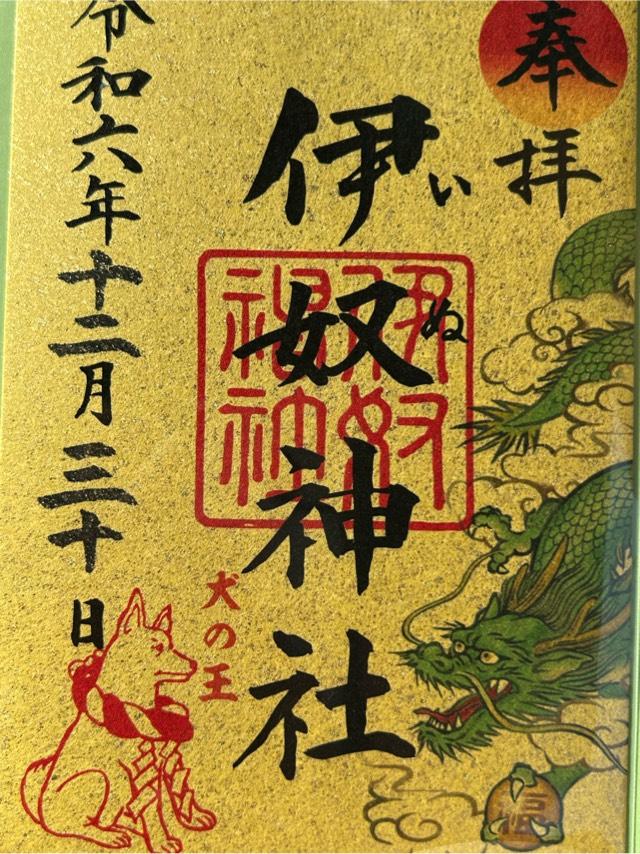 奉拝
伊奴神社
い
ぬ
伊奴
神社
犬の王
令和六年十二月三十日